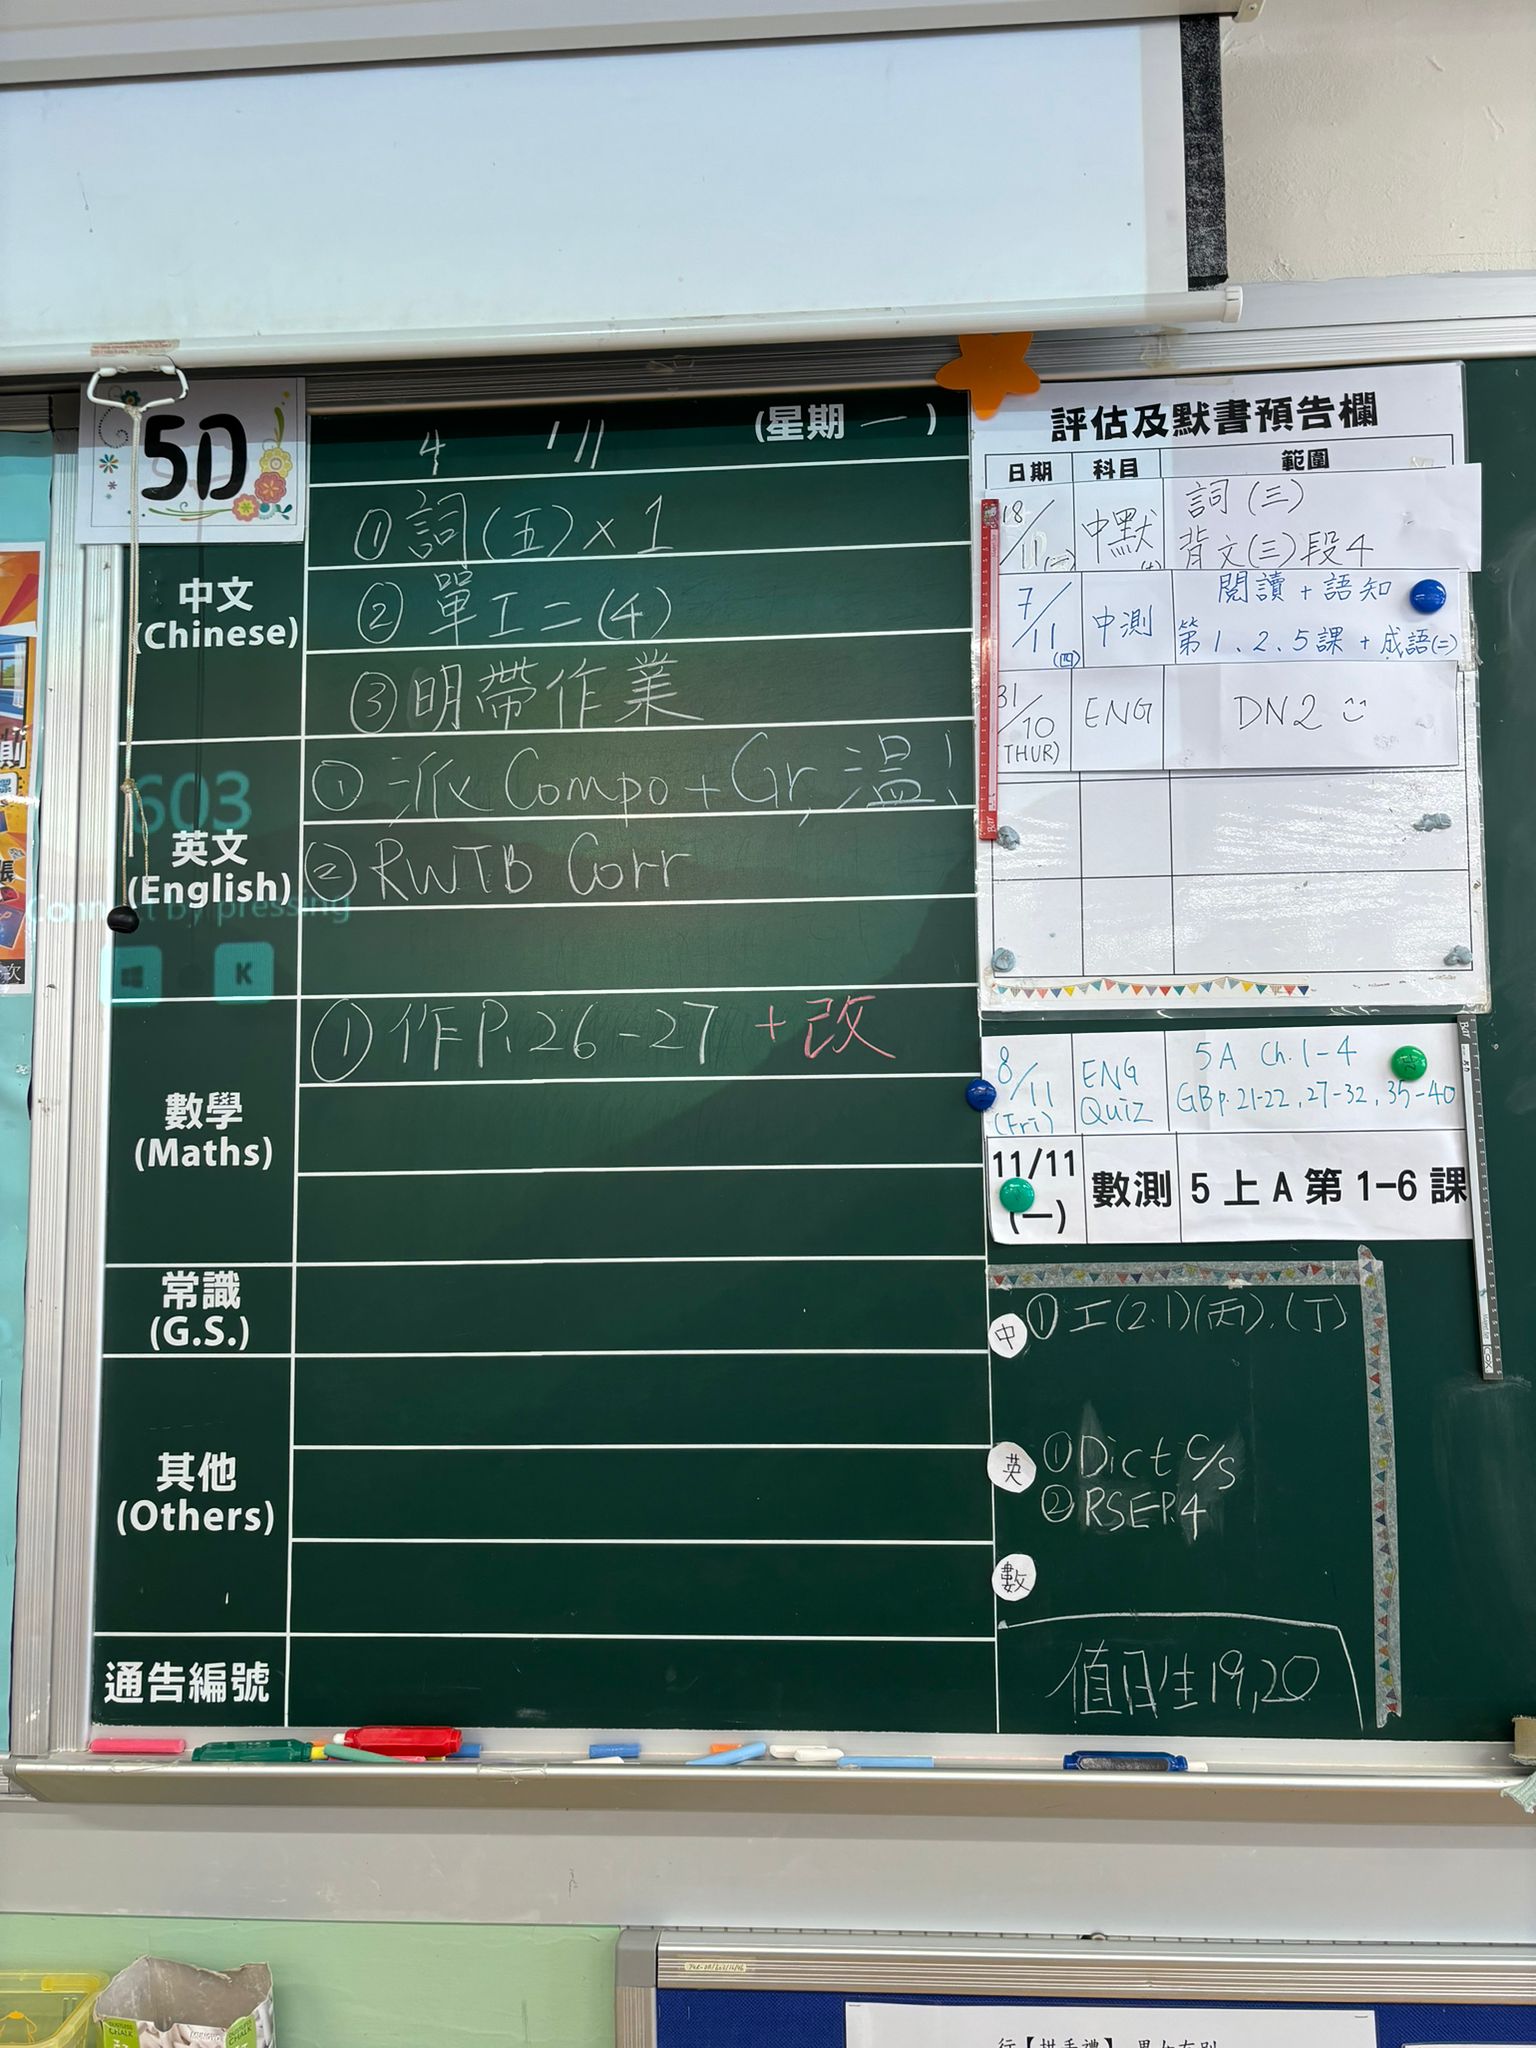 5D
4/11 (星期一)
中文
(Chinese)
①詞(五)×1
②單工二(4)
③明帶作業
603
英文
(English)
Connect by pressing
K
①派 Compo + Gr, 溫!
②RWTB Corr
數學
(Maths)
①作P.26-27 +改
常識
(G.S.)
其他
(Others)
通告編號
評估及默書預告欄
日期 科目 範圍
18/11(一) 中默 詞(三)
背文(三)段4
7/11(四) 中測 閱讀+語知
第1、2、5課+成語(二)
31/10 ENG DN2
(THUR)
8/11 ENG 5A Ch.1-4
(Fri) QUIZ GB p.21-22, 27-32, 35-40
11/11 數測 5上A第1-6課
(一)
中 ①工(2.1)(丙).(丁)
英 ①Dict c/s
②RSE P.4
數
值日生19,20